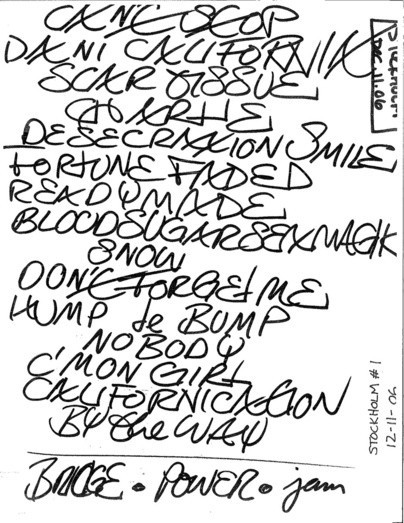 CAN'T STOP
DANI CALIFORNIA
SCAR TISSUE
CHARLIE
DESECRATION SMILE
FORTUNE FADED
READYMADE
BLOODSUGARSEXMAGIK
SNOW
DON'T FORGET ME
HUMP de BUMP
NOBODY
C'MON GIRL
CALIFORNICATION
BY the WAY
BRIDGE • POWER • jam
STOCKHOLM
DEC. 11. 06
STOCKHOLM #1
12-11-06